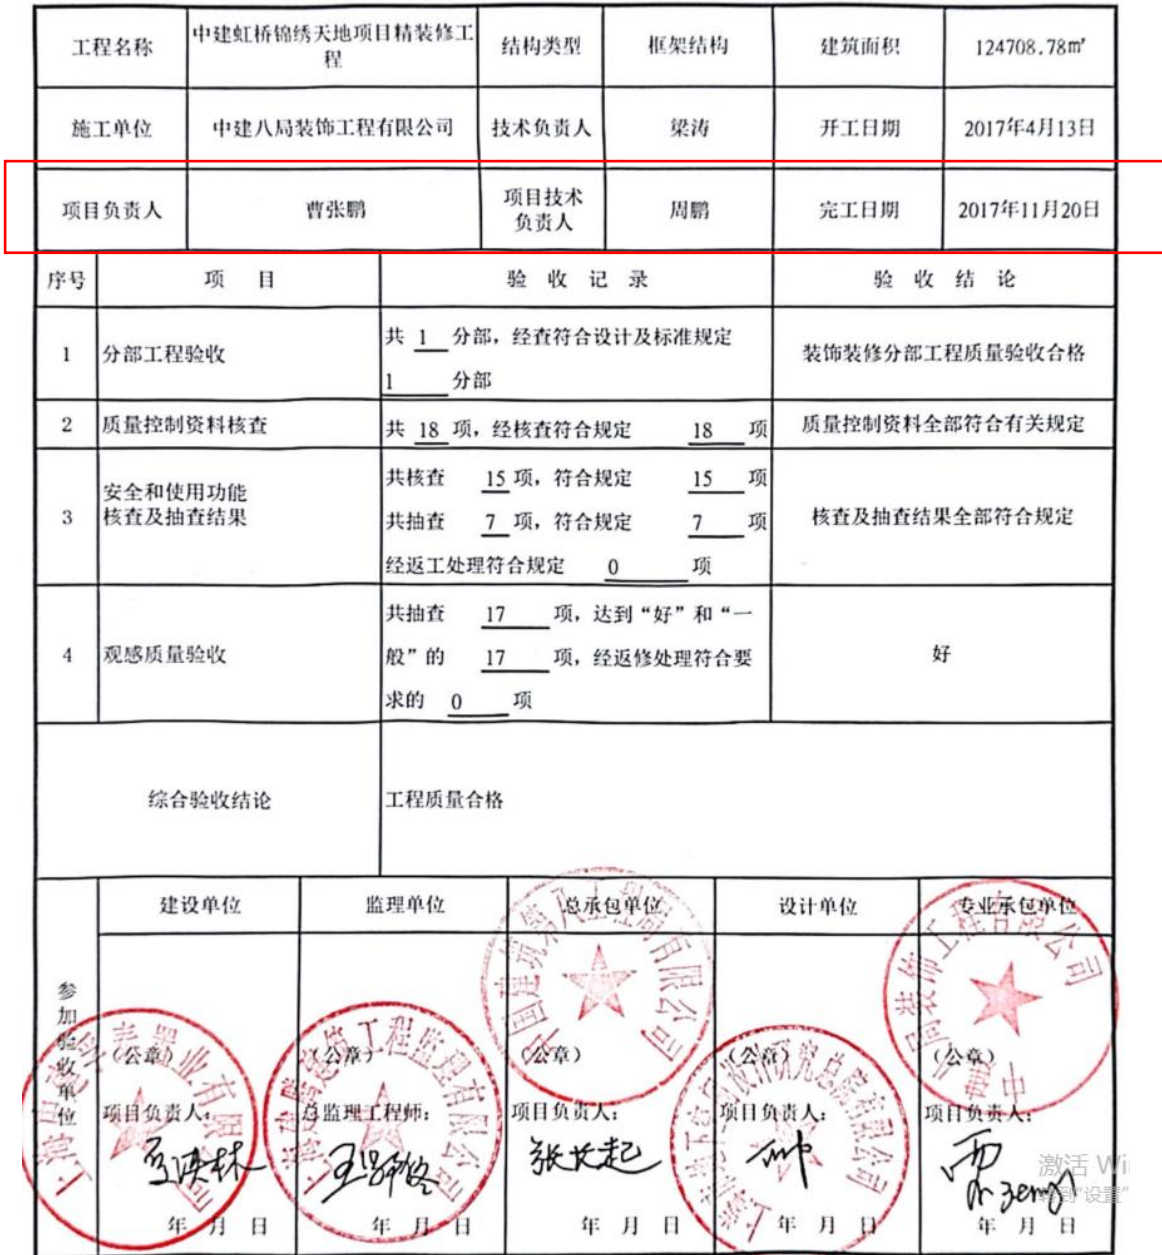 工程名称
中建虹桥锦绣天地项目精装修工
程
结构类型
框架结构
建筑面积
124708.78㎡
施工单位
中建八局装饰工程有限公司
技术负责人
梁涛
开工日期
2017年4月13日
项目负责人
曹张鹏
项目技术
负责人
周鹏
完工日期
2017年11月20日
序号
项 目
验 收 记 录
验 收 结 论
1
分部工程验收
共 1 分部，经查符合设计及标准规定
1 分部
装饰装修分部工程质量验收合格
2
质量控制资料核查
共 18 项，经核查符合规定 18 项
质量控制资料全部符合有关规定
3
安全和使用功能
核查及抽查结果
共核查 15 项，符合规定 15 项
共抽查 7 项，符合规定 7 项
经返工处理符合规定 0 项
核查及抽查结果全部符合规定
4
观感质量验收
共抽查 17 项，达到“好”和“一
般”的 17 项，经返修处理符合要
求的 0 项
好
综合验收结论
工程质量合格
参加验收单位
建设单位
监理单位
总承包单位
设计单位
专业承包单位
（公章）
（公章）
（公章）
（公章）
（公章）
项目负责人：
总监理工程师：
项目负责人：
项目负责人：
项目负责人：
张长起
年 月 日
年 月 日
年 月 日
年 月 日
年 月 日
中国建筑第八工程局有限公司
激活 Wi
转到“设置”